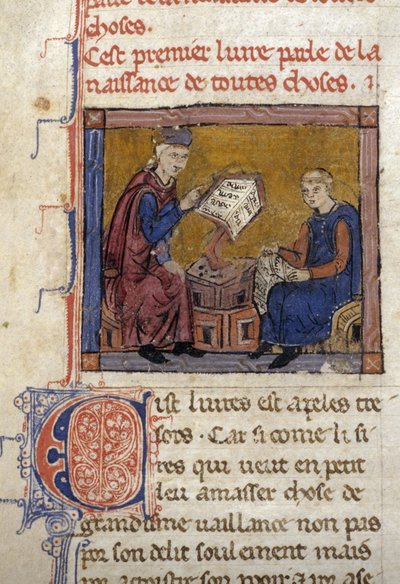 choses.
Cest premier liure parle de la
naissance de toutes choses. i
Cist liures est apeles tre
sors. Car si come li si
res qui ueut en petit
leu amasser chose de
grandisme uaillance non pas
pr son delit soulement mais
pr acroistre son pooir